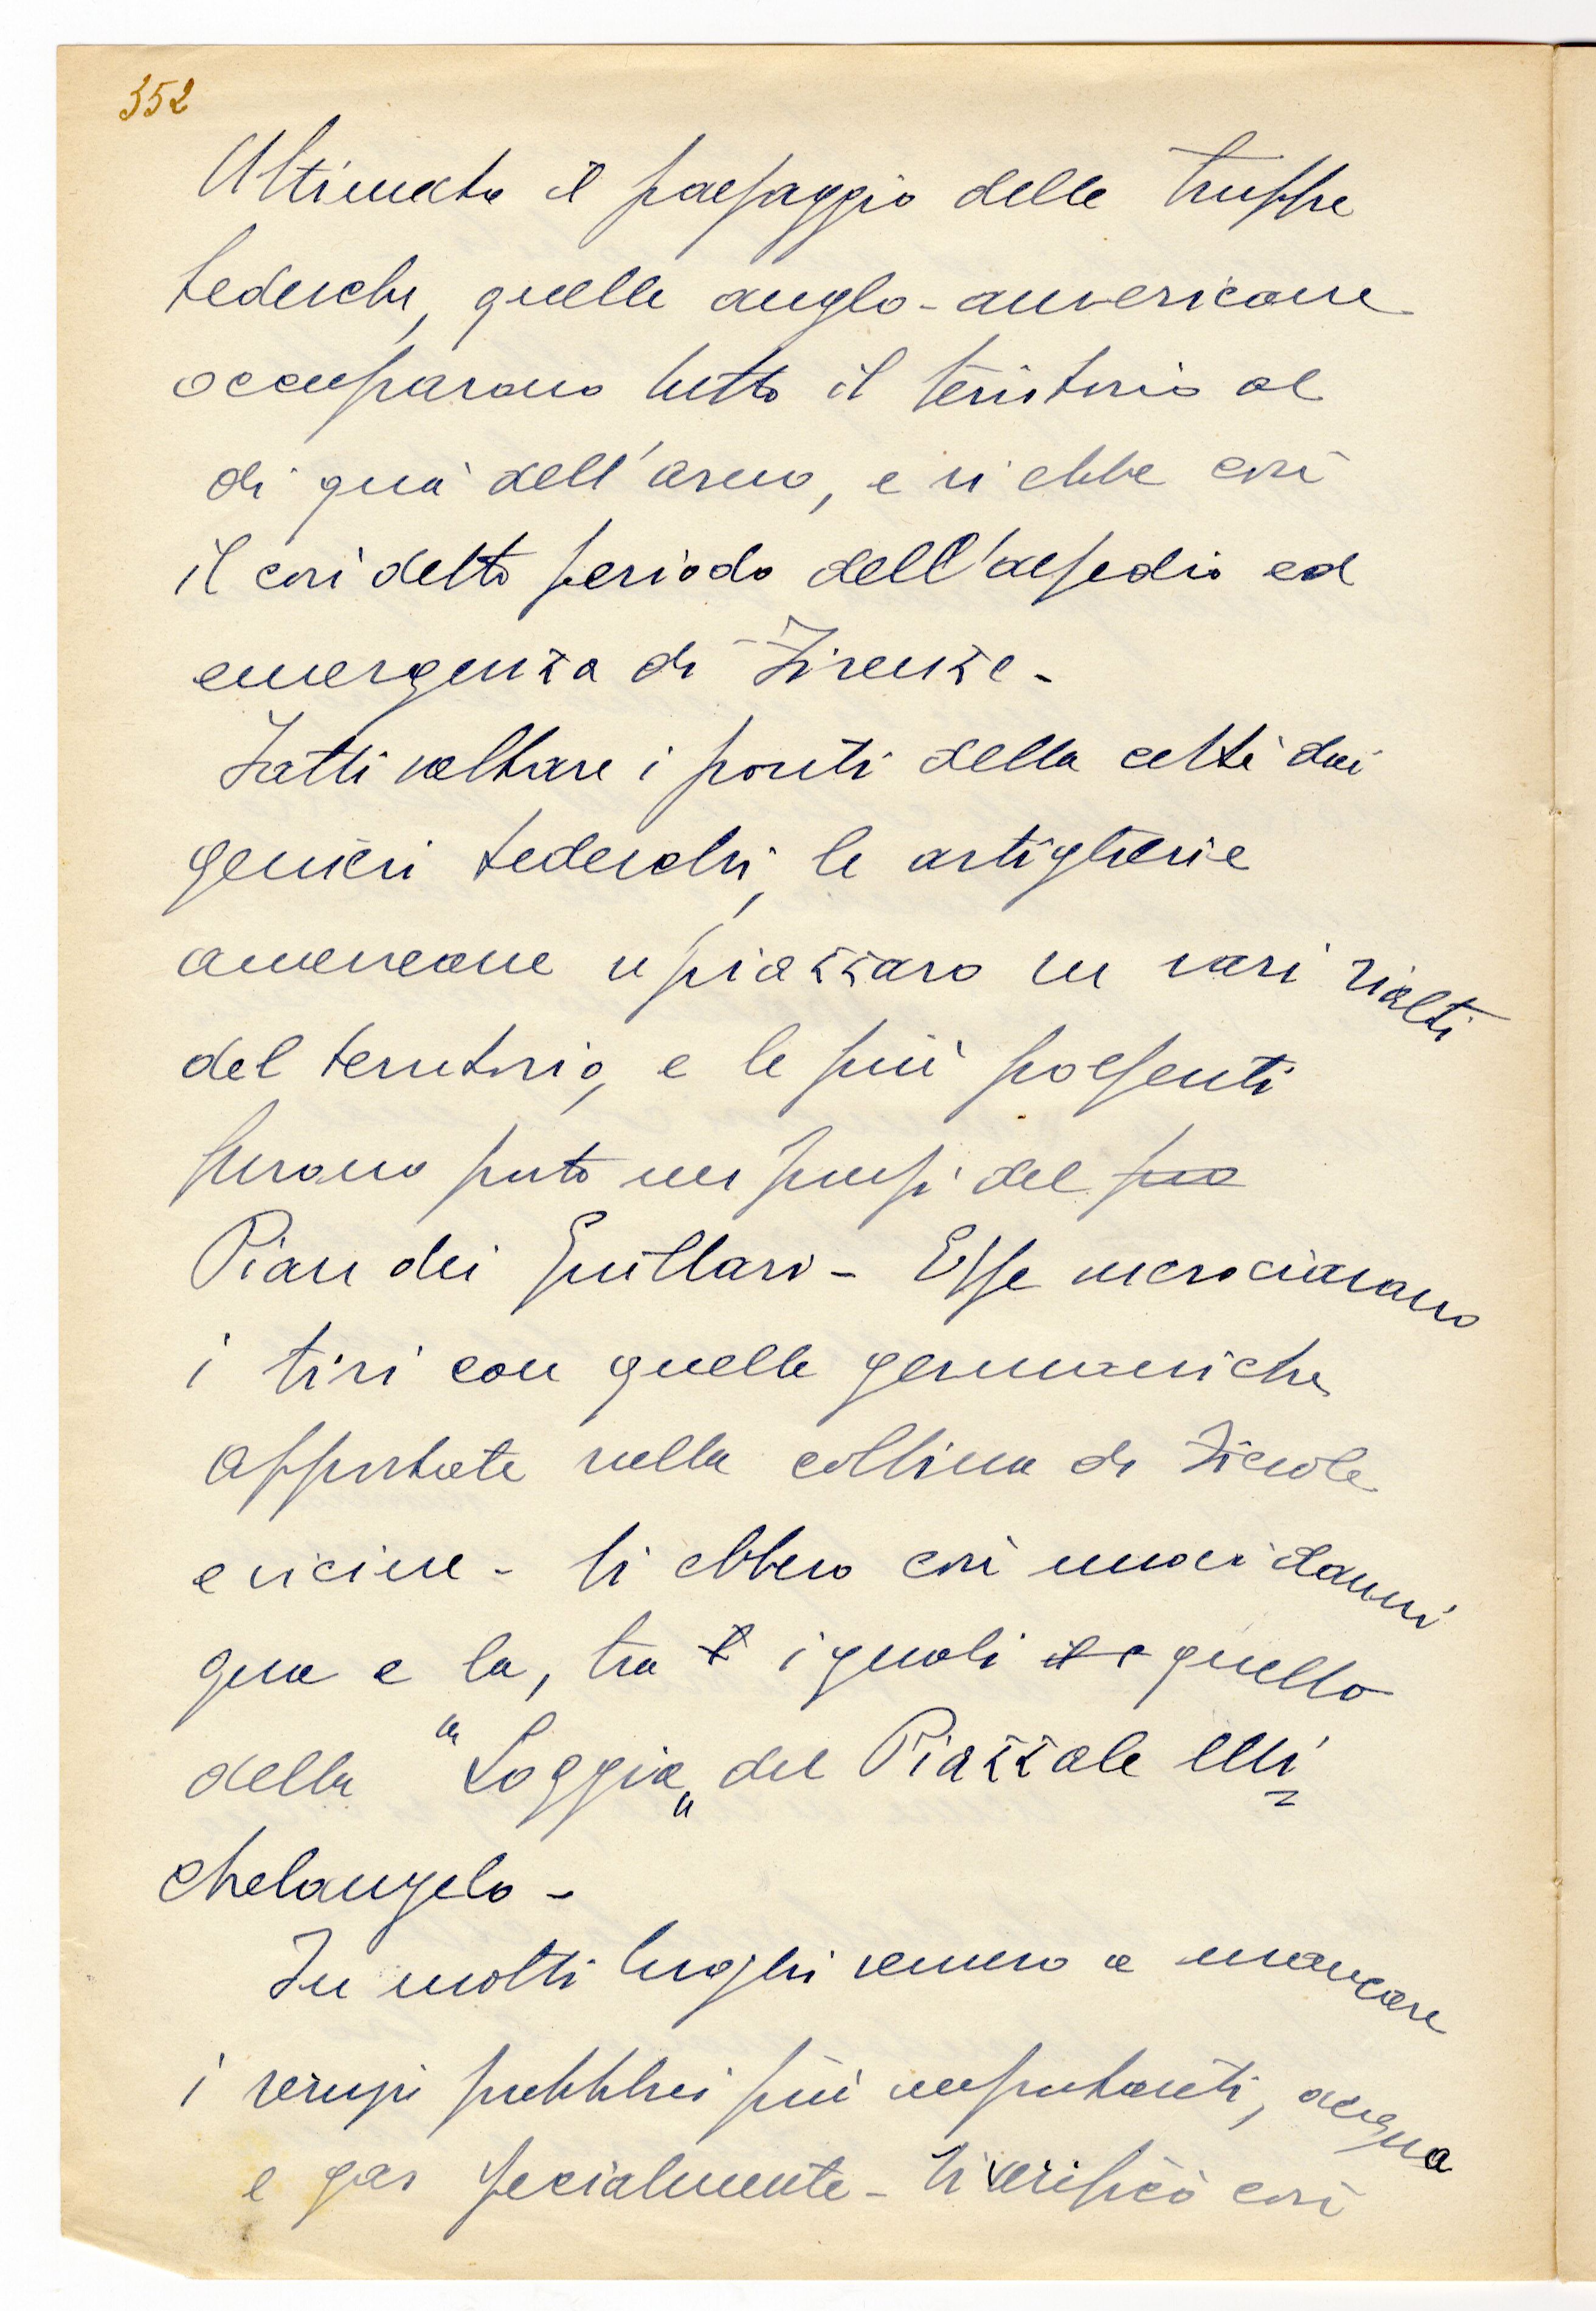 352
Ultimato il passaggio delle truppe
tedesche, quelle anglo-americane
occuparono tutto il territorio al
di quà dell'arno, e si ebbe così
il così detto periodo dell'assedio ed
emergenza di Firenze -
Fatti saltare i ponti della città dai
genieri tedeschi, le artiglierie
americane si piazzaro in vari rialti
del territorio, e le più possenti
furono poste nei pressi del
Pian dei Giullari - Esse incrociarono
i tiri con quelle germaniche
appostate nella collina di Fiesole
e vicine - Si ebbero così danni
qua e la, tra i quali quello
della "Loggia" del Piazzale Mi
chelangelo -
In molti luoghi vennero a mancare
i servizi pubblici più importanti, acqua
e gas specialmente - Si verificò così